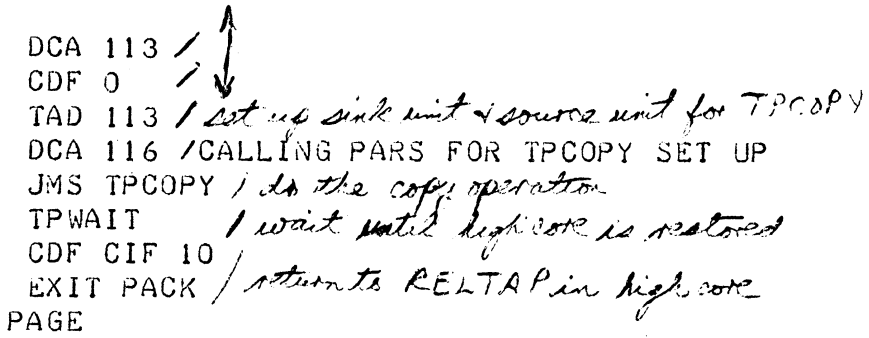 DCA 113 /
CDF 0 /
TAD 113 / set up sink unit & source unit for TPCOPY
DCA 116 /CALLING PARS FOR TPCOPY SET UP
JMS TPCOPY / do the copy operation
TPWAIT / wait until high core is restored
CDF CIF 10
EXIT PACK / return to RELTAP in high core
PAGE